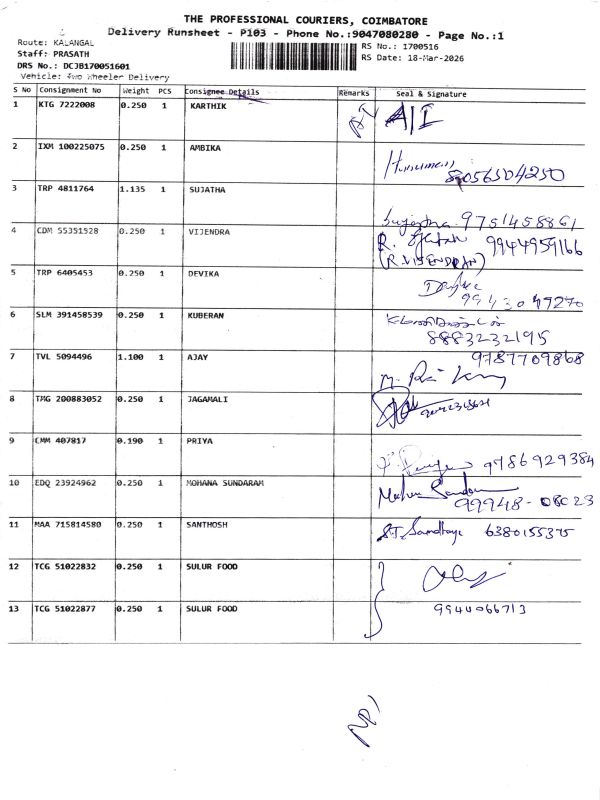 THE PROFESSIONAL COURIERS, COIMBATORE
Delivery Runsheet - P103 - Phone No.:9047080280 - Page No.:1
Route: KALANGAL
Staff: PRASATH
DRS No.: DCJB170051601
Vehicle: Two Wheeler Delivery
RS No.: 1700516
RS Date: 18-Mar-2026
S No Consignment No Weight PCS Consignee Details Remarks Seal & Signature
1 KTG 7222008 0.250 1 KARTHIK A/I
2 IXM 100225075 0.250 1 AMBIKA 8056504250
3 TRP 4811764 1.135 1 SUJATHA Sujatha 9751458861
4 CDM 55351528 0.250 1 VIJENDRA R. 9944959166
(R.VIJENDRAN)
5 TRP 6405453 0.250 1 DEVIKA 9943047270
6 SLM 391458539 0.250 1 KUBERAN 8883232195
7 TVL 5094496 1.100 1 AJAY 9787709868
8 TMG 200883052 0.250 1 JAGAMALI
9 CMM 407817 0.190 1 PRIYA 9786929384
10 EDQ 23924962 0.250 1 MOHANA SUNDARAM 99948-08023
11 MAA 715814580 0.250 1 SANTHOSH 6380155375
12 TCG 51022832 0.250 1 SULUR FOOD
13 TCG 51022877 0.250 1 SULUR FOOD 9944066713